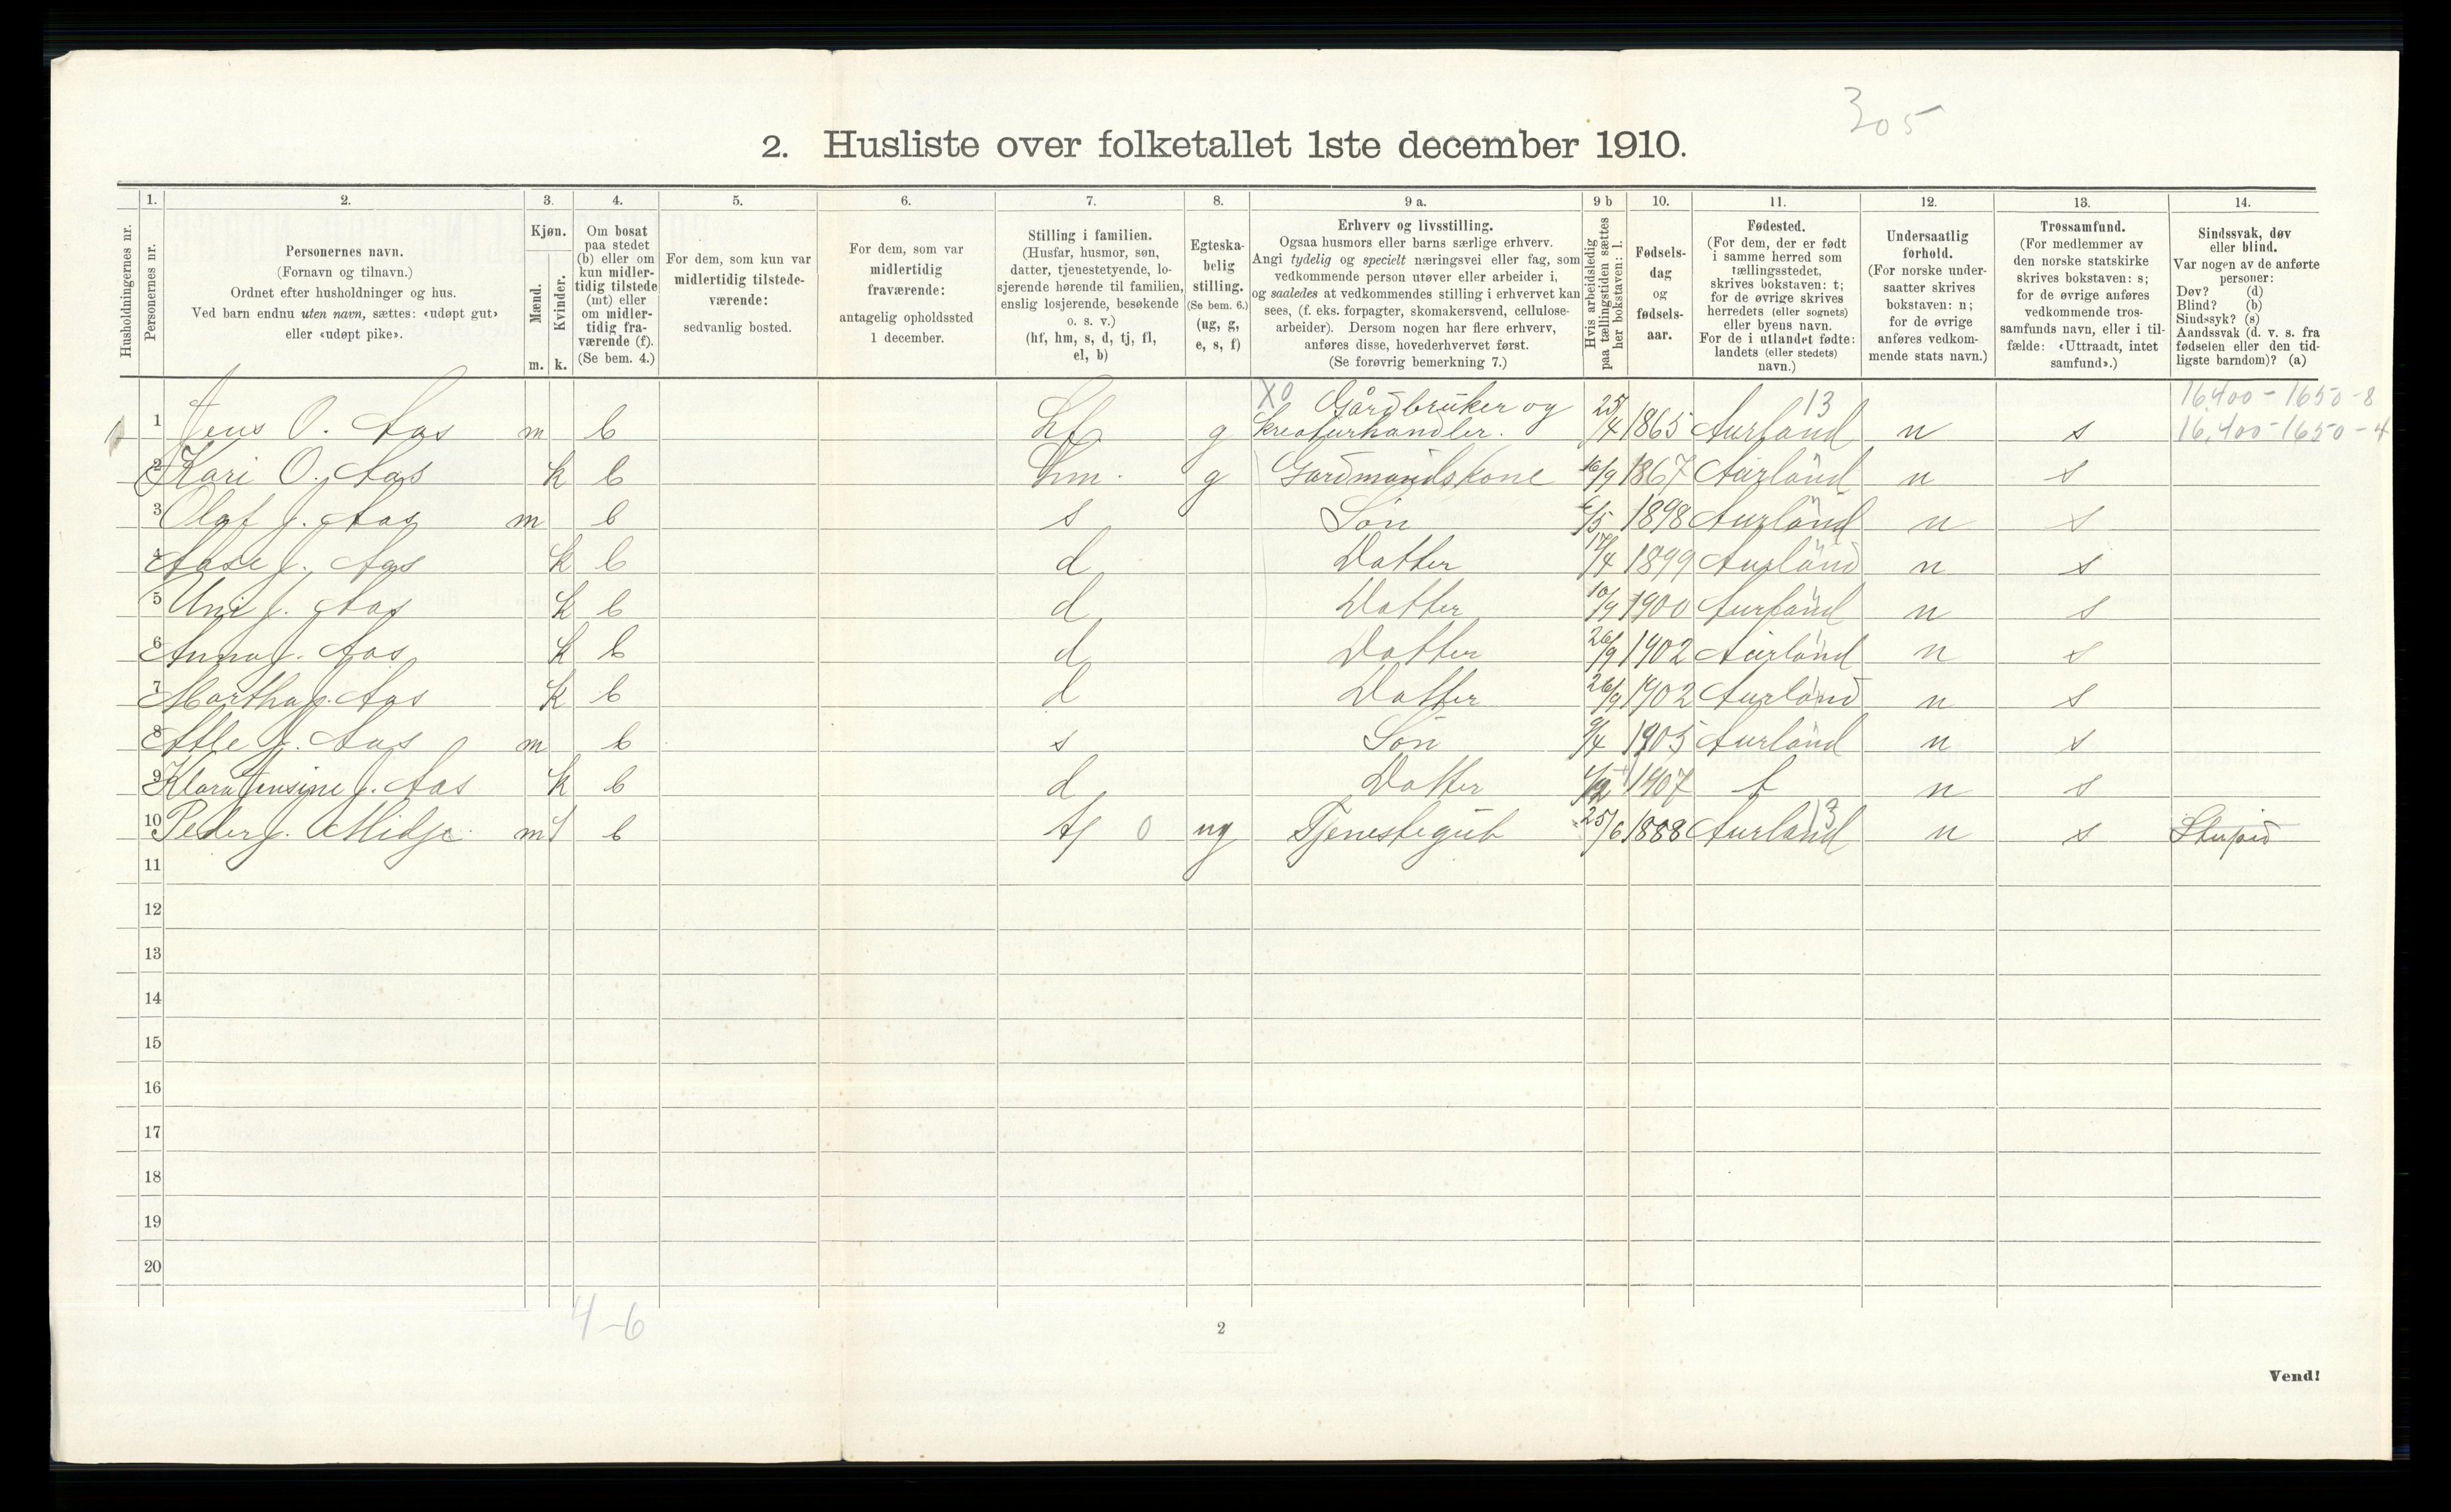 305
2. Husliste over folketallet 1ste december 1910.
1. 2. 3. 4. 5. 6. 7. 8. 9 a. 9 b 10. 11. 12. 13. 14.
Husholdningernes nr.
Personernes nr.
Personernes navn.
(Fornavn og tilnavn.)
Ordnet efter husholdninger og hus.
Ved barn endnu uten navn, sættes: «udøpt gut»
eller «udøpt pike».
Kjøn.
Mænd.
Kvinder.
m. k.
Om bosat
paa stedet
(b) eller om
kun midler-
tidig tilstede
(mt) eller
om midler-
tidig fra-
værende (f).
(Se bem. 4.)
For dem, som kun var
midlertidig tilstede-
værende:
sedvanlig bosted.
For dem, som var
midlertidig
fraværende:
antagelig opholdssted
1 december.
Stilling i familien.
(Husfar, husmor, søn,
datter, tjenestetyende, lo-
sjerende hørende til familien,
enslig losjerende, besøkende
o. s. v.)
(hf, hm, s, d, tj, fl,
el, b)
Egteska-
belig
stilling.
(Se bem. 6.)
(ug, g,
e, s, f)
Erhverv og livsstilling.
Ogsaa husmors eller barns særlige erhverv.
Angi tydelig og specielt næringsvei eller fag, som
vedkommende person utøver eller arbeider i,
og saaledes at vedkommendes stilling i erhvervet kan
sees, (f. eks. forpagter, skomakersvend, cellulose-
arbeider). Dersom nogen har flere erhverv,
anføres disse, hovederhvervet først.
(Se forøvrig bemerkning 7.)
Hvis arbeidsledig
paa tællingstiden sættes
her bokstaven: l.
Fødsels-
dag
og
fødsels-
aar.
Fødested.
(For dem, der er født
i samme herred som
tællingsstedet,
skrives bokstaven: t;
for de øvrige skrives
herredets (eller sognets)
eller byens navn.
For de i utlandet fødte:
landets (eller stedets)
navn.)
Undersaatlig
forhold.
(For norske under-
saatter skrives
bokstaven: n;
for de øvrige
anføres vedkom-
mende stats navn.)
Trossamfund.
(For medlemmer av
den norske statskirke
skrives bokstaven: s;
for de øvrige anføres
vedkommende tros-
samfunds navn, eller i til-
fælde: «Uttraadt, intet
samfund».)
Sindssvak, døv
eller blind.
Var nogen av de anførte
personer:
Døv? (d)
Blind? (b)
Sindssyk? (s)
Aandssvak (d. v. s. fra
fødselen eller den tid-
ligste barndom)? (a)
X0 Gårdbruker og 13 16400 - 1650 - 8
1 1 Jens O. Aas m b hf g kreaturhandler. 25/4 1865 Aurland n s 16,400 - 1650 - 4
2 Kari O. Aas k b hm. g Gardmandskone 16/9 1867 Aurland n s
3 Olaf J. Aas m b s Søn 6/5 1898 Aurland n s
4 Aase J. Aas k b d Datter 17/4 1899 Aurland n s
5 Uni J. Aas k b d Datter 10/9 1900 Aurland n s
6 Anna J. Aas k b d Datter 26/9 1902 Aurland n s
7 Martha J. Aas k b d Datter 26/9 1902 Aurland n s
8 Atle J. Aas m b s Søn 9/4 1905 Aurland n s
9 Klara Jensine J. Aas k b d Datter 4/12 1907 t n s
10 Peder J. Midje m b tj 0 ug Tjenestegut 25/6 1888 Aurland 13 n s Stupid
11
12
13
14
15
16
17
18
19
20
4-6
2
Vend!